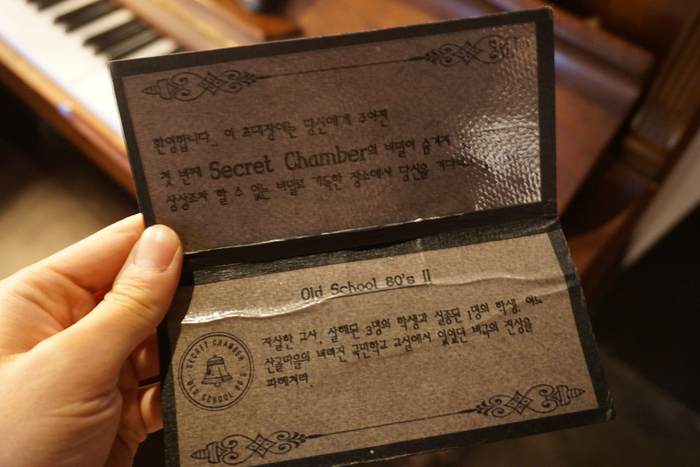 환영합니다. 이 초대장에는 당신에게 주어진
첫 번째 Secret Chamber의 비밀이 숨겨져
상상조차 할 수 없는 비밀로 가득한 장소에서 당신을
Old School 80's II
자살한 교사, 살해된 3명의 학생과 실종된 1명의 학생. 어느
산골마을의 버려진 국민학교 교실에서 있었던 비극의 진상을
파헤쳐라.
SECRET CHAMBER
OLD SCHOOL